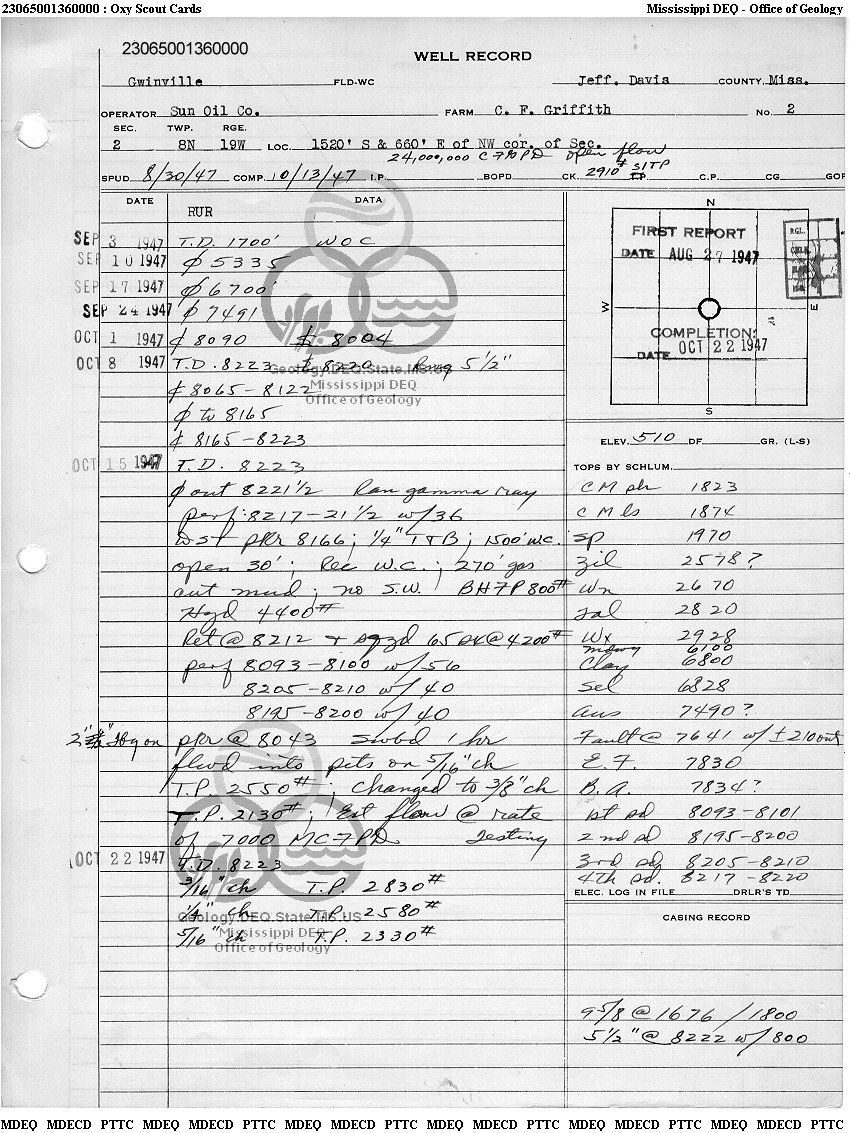 23065001360000 : Oxy Scout Cards Mississippi DEQ - Office of Geology
23065001360000
WELL RECORD
Gwinville FLD-WC Jeff. Davis COUNTY, Miss.
OPERATOR Sun Oil Co. FARM C. F. Griffith NO. 2
SEC. TWP. RGE.
2 8N 19W LOC. 1520' S & 660' E of NW cor. of Sec.
24,000,000 CFGPD open flow
SPUD 8/30/47 COMP. 10/13/47 I.P. BOPD CK. 2910# SITP T.P. C.P. CG. GOR
DATE DATA
RUR
SEP 3 1947 T.D. 1700' WOC
SEP 10 1947 ₵ 5335
SEP 17 1947 ₵ 6700'
SEP 24 1947 ₵ 7491
OCT 1 1947 ₵ 8090 ₵ 8004
OCT 8 1947 T.D. 8223 ₵ 8220 Rng 5 1/2"
₵ 8065-8122
₵ to 8165
₵ 8165-8223
OCT 15 1947 T.D. 8223
₵ out 8221 1/2 Ran gamma ray
perf: 8217-21 1/2 w/36
DST pkr 8166; 1/4" T&B; 1500' W.C.
open 30'; Rec W.C.; 270' gas
cut mud; no S.W. BHFP 800#
Hyd 4400#
Ret @ 8212 + sqzd 65 sx @ 4200#
perf 8093-8100 w/56
8205-8210 w/40
8195-8200 w/40
2" Tbg on pkr @ 8043 Swbd 1 hr
flwd into pits on 5/16" ch
T.P. 2550#; changed to 3/8" ch
T.P. 2130#; Est flow @ rate
of 7000 MCFPD Testing
OCT 22 1947 T.D. 8223
3/16" ch T.P. 2830#
1/4" ch T.P. 2580#
5/16" ch T.P. 2330#
Geology.DEQ.State.MS.US
Mississippi DEQ
Office of Geology
Geology.DEQ.State.MS.US
Mississippi DEQ
Office of Geology
N
FIRST REPORT
DATE AUG 27 1947
RGL.
W E
COMPLETION:
DATE OCT 22 1947
S
ELEV. 510 DF. GR. (L-S)
TOPS BY SCHLUM.
CM ph 1823
CM ls 1874
sp 1970
zil 2578?
Wn 2670
Jal 2820
Wx 2928
mdwy 6100
Clay 6800
Sel 6828
aus 7490?
Fault @ 7641 w/ ± 210 out
E.F. 7830
B.A. 7834?
1st sd 8093-8101
2nd sd 8195-8200
3rd sd 8205-8210
4th sd. 8217-8220
ELEC. LOG IN FILE DRLR'S TD.
CASING RECORD
9 5/8 @ 1676 / 1800
5 1/2" @ 8222 w/ 800
MDEQ MDECD PTTC MDEQ MDECD PTTC MDEQ MDECD PTTC MDEQ MDECD PTTC MDEQ MDECD PTTC MDEQ MDECD PTTC